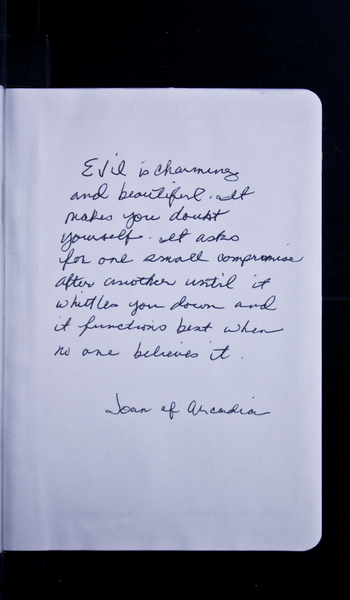 Evil is charming
and beautiful. It
makes you doubt
yourself. It asks
for one small compromise
after another until it
whittles you down and
it functions best when
no one believes it.
Joan of Arcadia